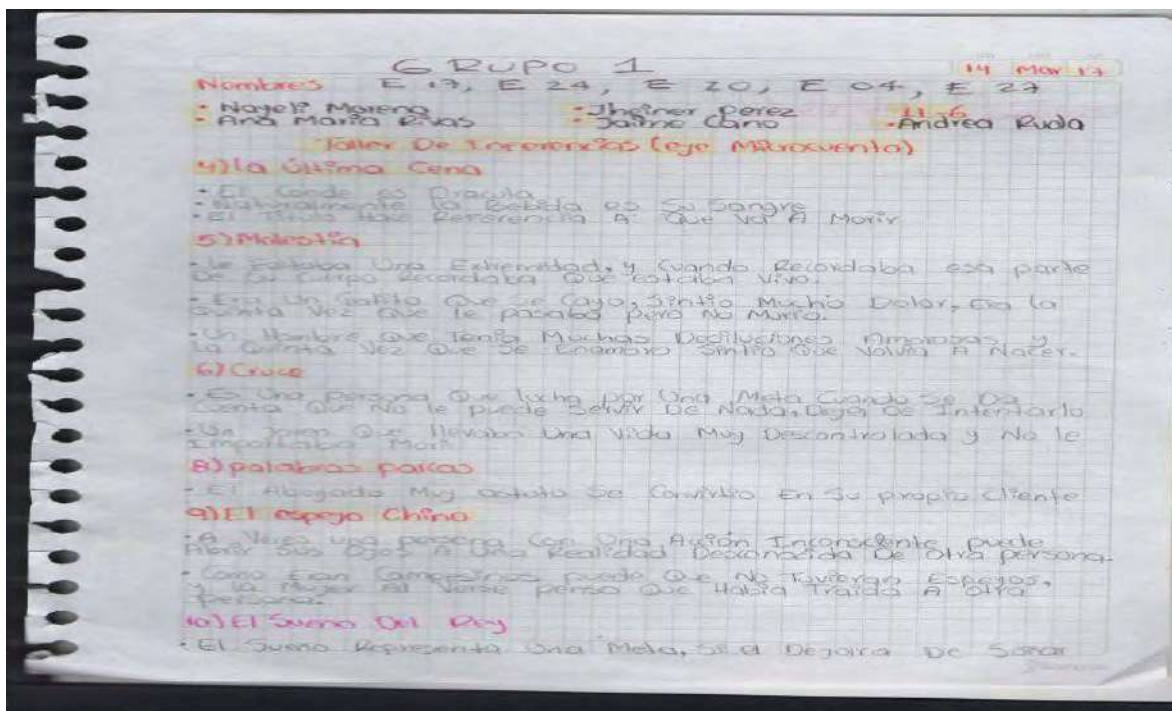 GRUPO 1
14 Mar 17
Nombres E 17, E 24, E 20, E 04, E 27
- Nayeli Morena - Jheiner Perez 11-6
- Ana Maria Rivas - Jaime Cano - Andrea Ruda
Taller De Inferencias (eje Microcuento)
4) la Última Cena
- El Conde es Dracula
- Naturalmente la Bebida es Su Sangre
- El Titulo Hace Referencia A Que Va A Morir
5) Molestia
- le Faltaba Una Extremidad, y Cuando Recordaba esa parte
De Su Cuerpo Recordaba Que estaba Vivo.
- Era Un Gatito Que se Cayo, Sintio Mucho Dolor, Era la
Quinta Vez Que le pasaba pero No Murio.
- Un Hombre Que Tenia Muchas Desiluciones Amorosas y
La Quinta Vez Que Se Enamoro Sintio Que Volvia A Nacer.
6) Cruce
- Es Una persona Que lucha por Una Meta Cuando Se Da
Cuenta Que No le puede Servir De Nada, Deja De Intentarlo
- Un Joven Que llevaba Una Vida Muy Descontrolada y No le
Importaba Morir
8) palabras parcas
- El Abogado Muy astuto Se Convirtio En Su propio Cliente
9) El espejo Chino
- A Veces una persona Con Una Acción Inconsciente puede
Abrir Sus Ojos A Una Realidad Desconocida De Otra persona.
- Como Eran Campesinos puede Que No Tuvieran Espejos,
y la Mujer Al Verse penso Que Habia Traido A Otra
persona.
10) El Sueno Del Rey
- El Sueno Representa Una Meta, Si el Dejara De Sonar